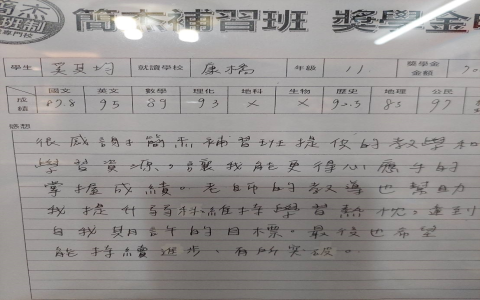 簡杰補習班 獎學金
學生 吳其均 就讀學校 康橋 年級 11 獎學金金額
國文 英文 數學 理化 地科 生物 歷史 地理 公民
成績 87.8 95 89 93 X X 90.5 85 97
感想
很感謝簡杰補習班提供的教學和
學習資源,讓我能更得心應手的
掌握成績。老師的教導也幫助
我提升弱科維持學習熱忱,達到
自我期許的目標。最後也希望
能持續進步、有所突破。